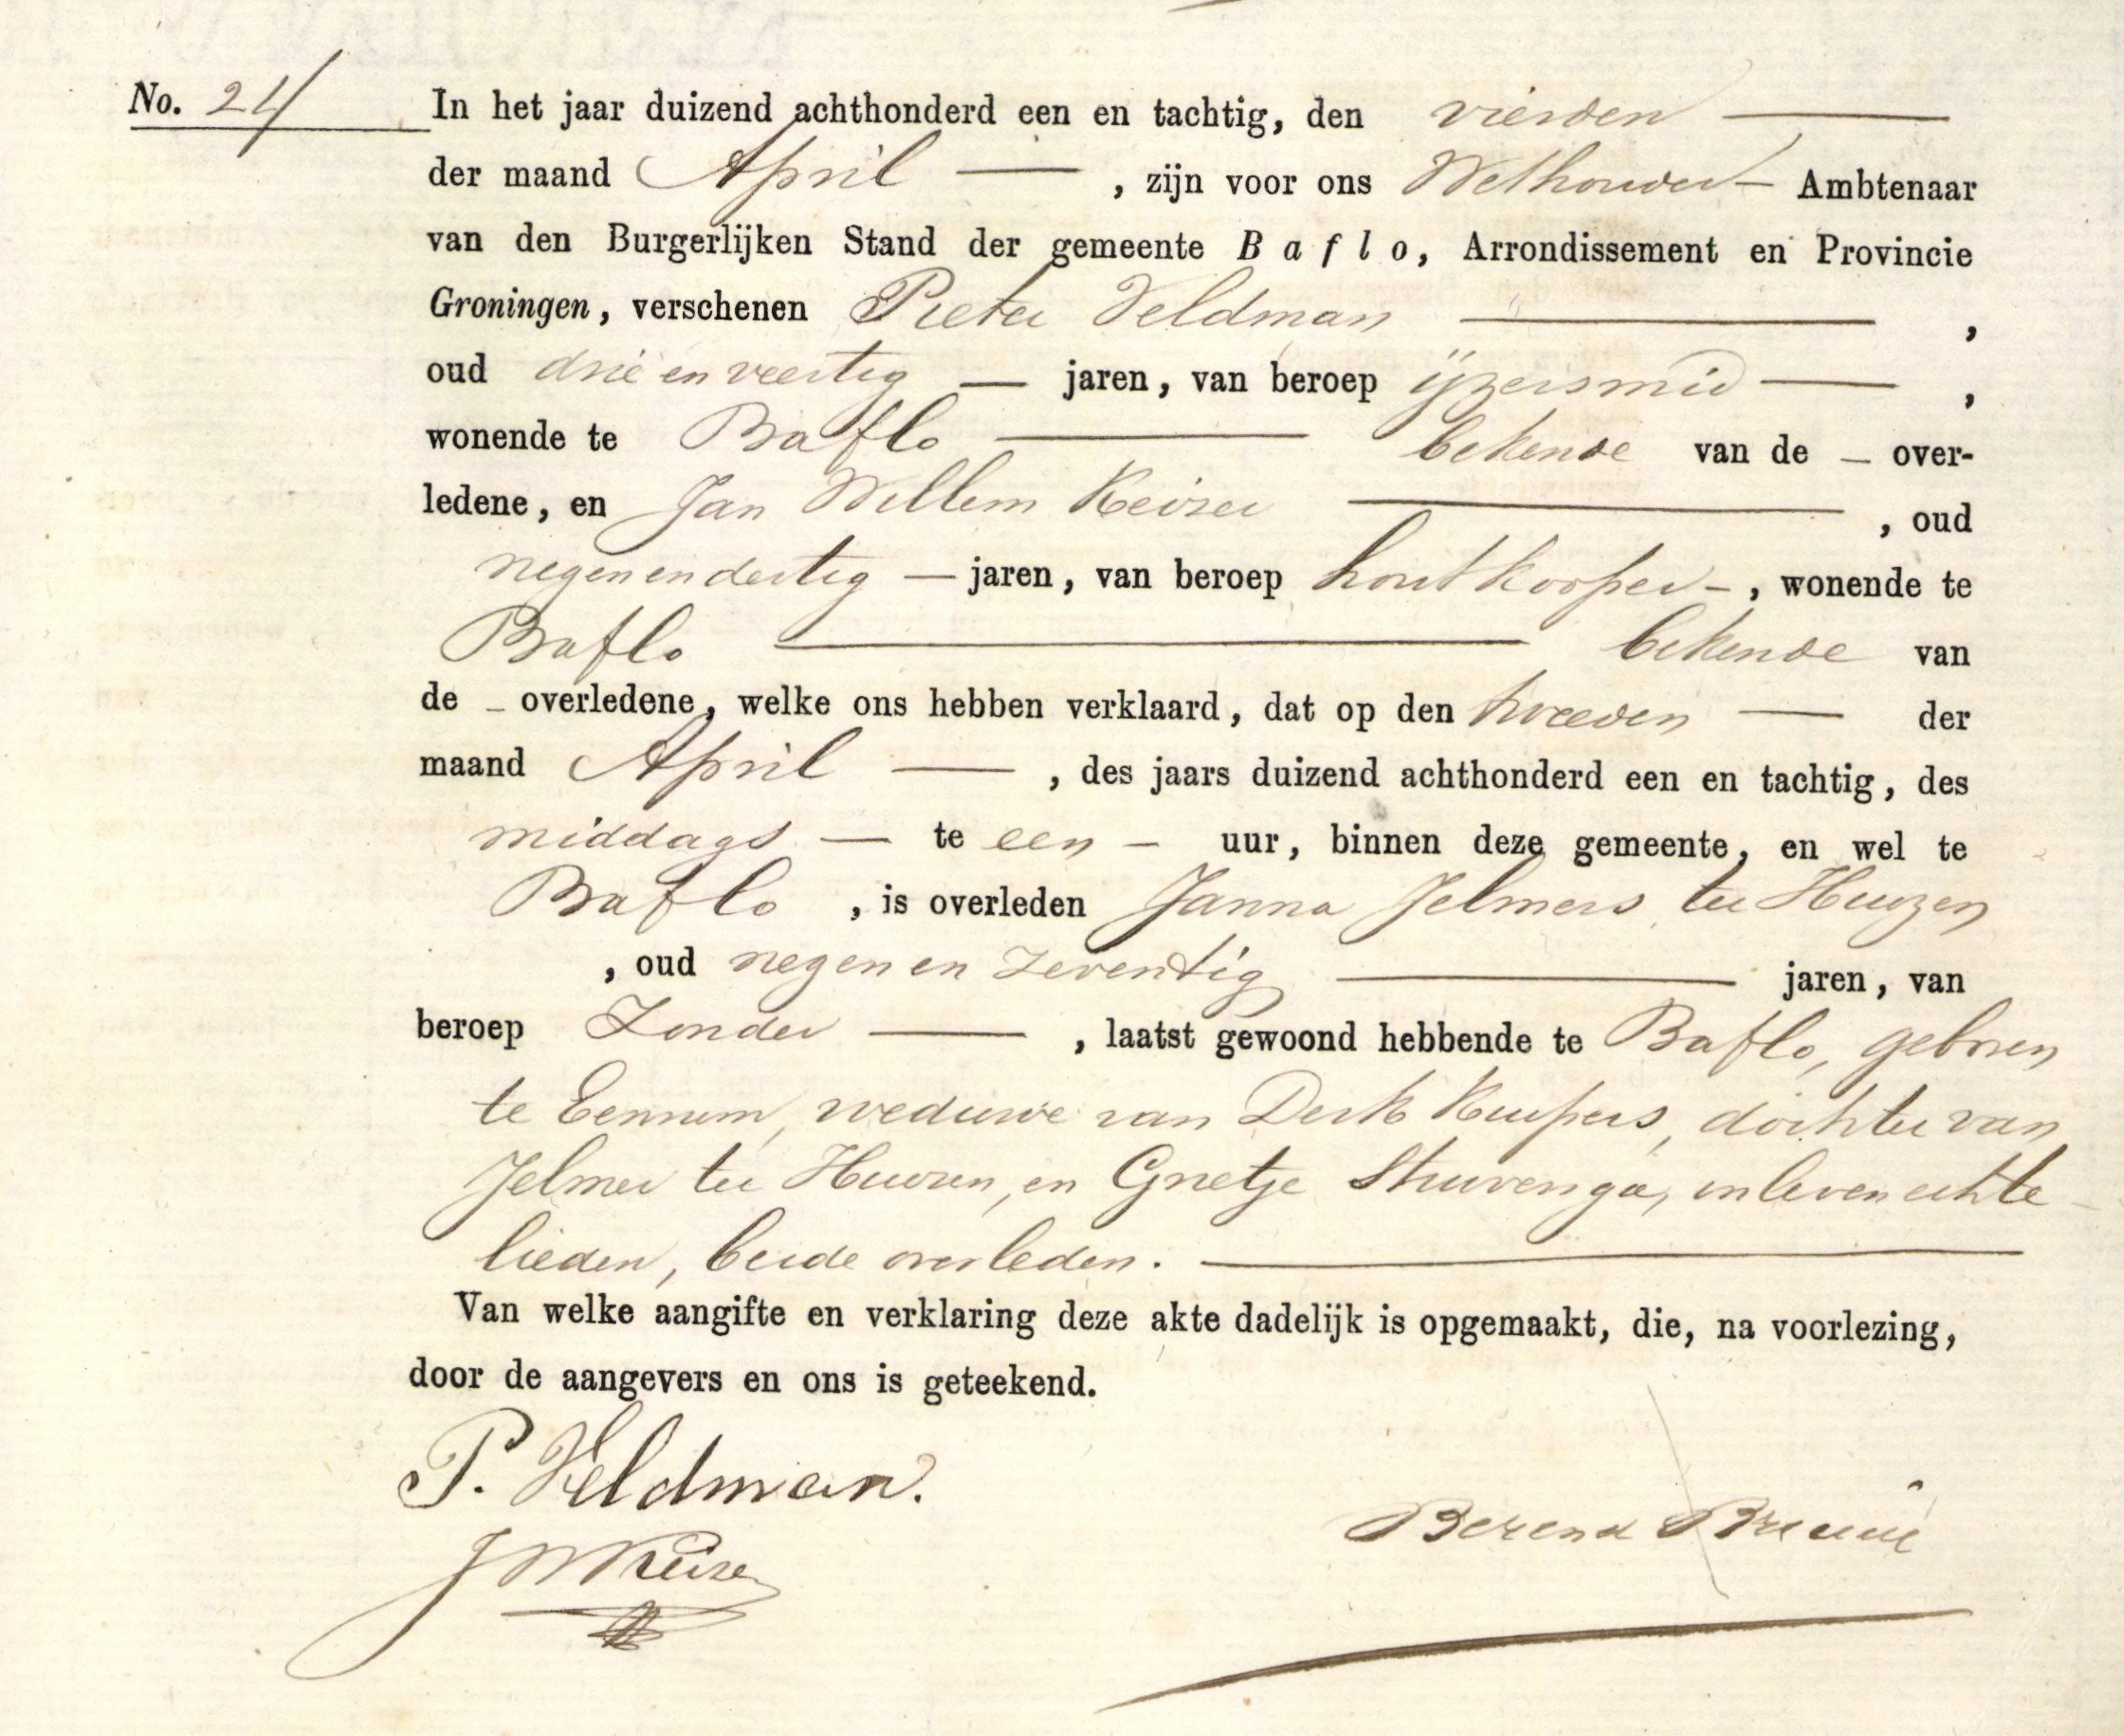 No. 24 In het jaar duizend achthonderd een en tachtig, den vierden
der maand April, zijn voor ons Wethouder Ambtenaar
van den Burgerlijken Stand der gemeente Baflo, Arrondissement en Provincie
Groningen, verschenen Pieter Veldman,
oud drie en veertig jaren, van beroep ijzersmid,
wonende te Baflo bekende van de over-
ledene, en Jan Willem Keizer, oud
negen en dertig jaren, van beroep houtkooper, wonende te
Baflo bekende van
de overledene, welke ons hebben verklaard, dat op den tweeden der
maand April, des jaars duizend achthonderd een en tachtig, des
middags te een uur, binnen deze gemeente, en wel te
Baflo, is overleden Janna Jelmers ter Huizen
, oud negen en zeventig jaren, van
beroep Zonder, laatst gewoond hebbende te Baflo, geboren
te Eenrum, weduwe van Derk Kuipers, dochter van
Jelmer ter Huizen, en Grietje Stuivenga, in leven echte
lieden, beide overleden.
Van welke aangifte en verklaring deze akte dadelijk is opgemaakt, die, na voorlezing,
door de aangevers en ons is geteekend.
P. Veldman.
JW Keizer
Berend